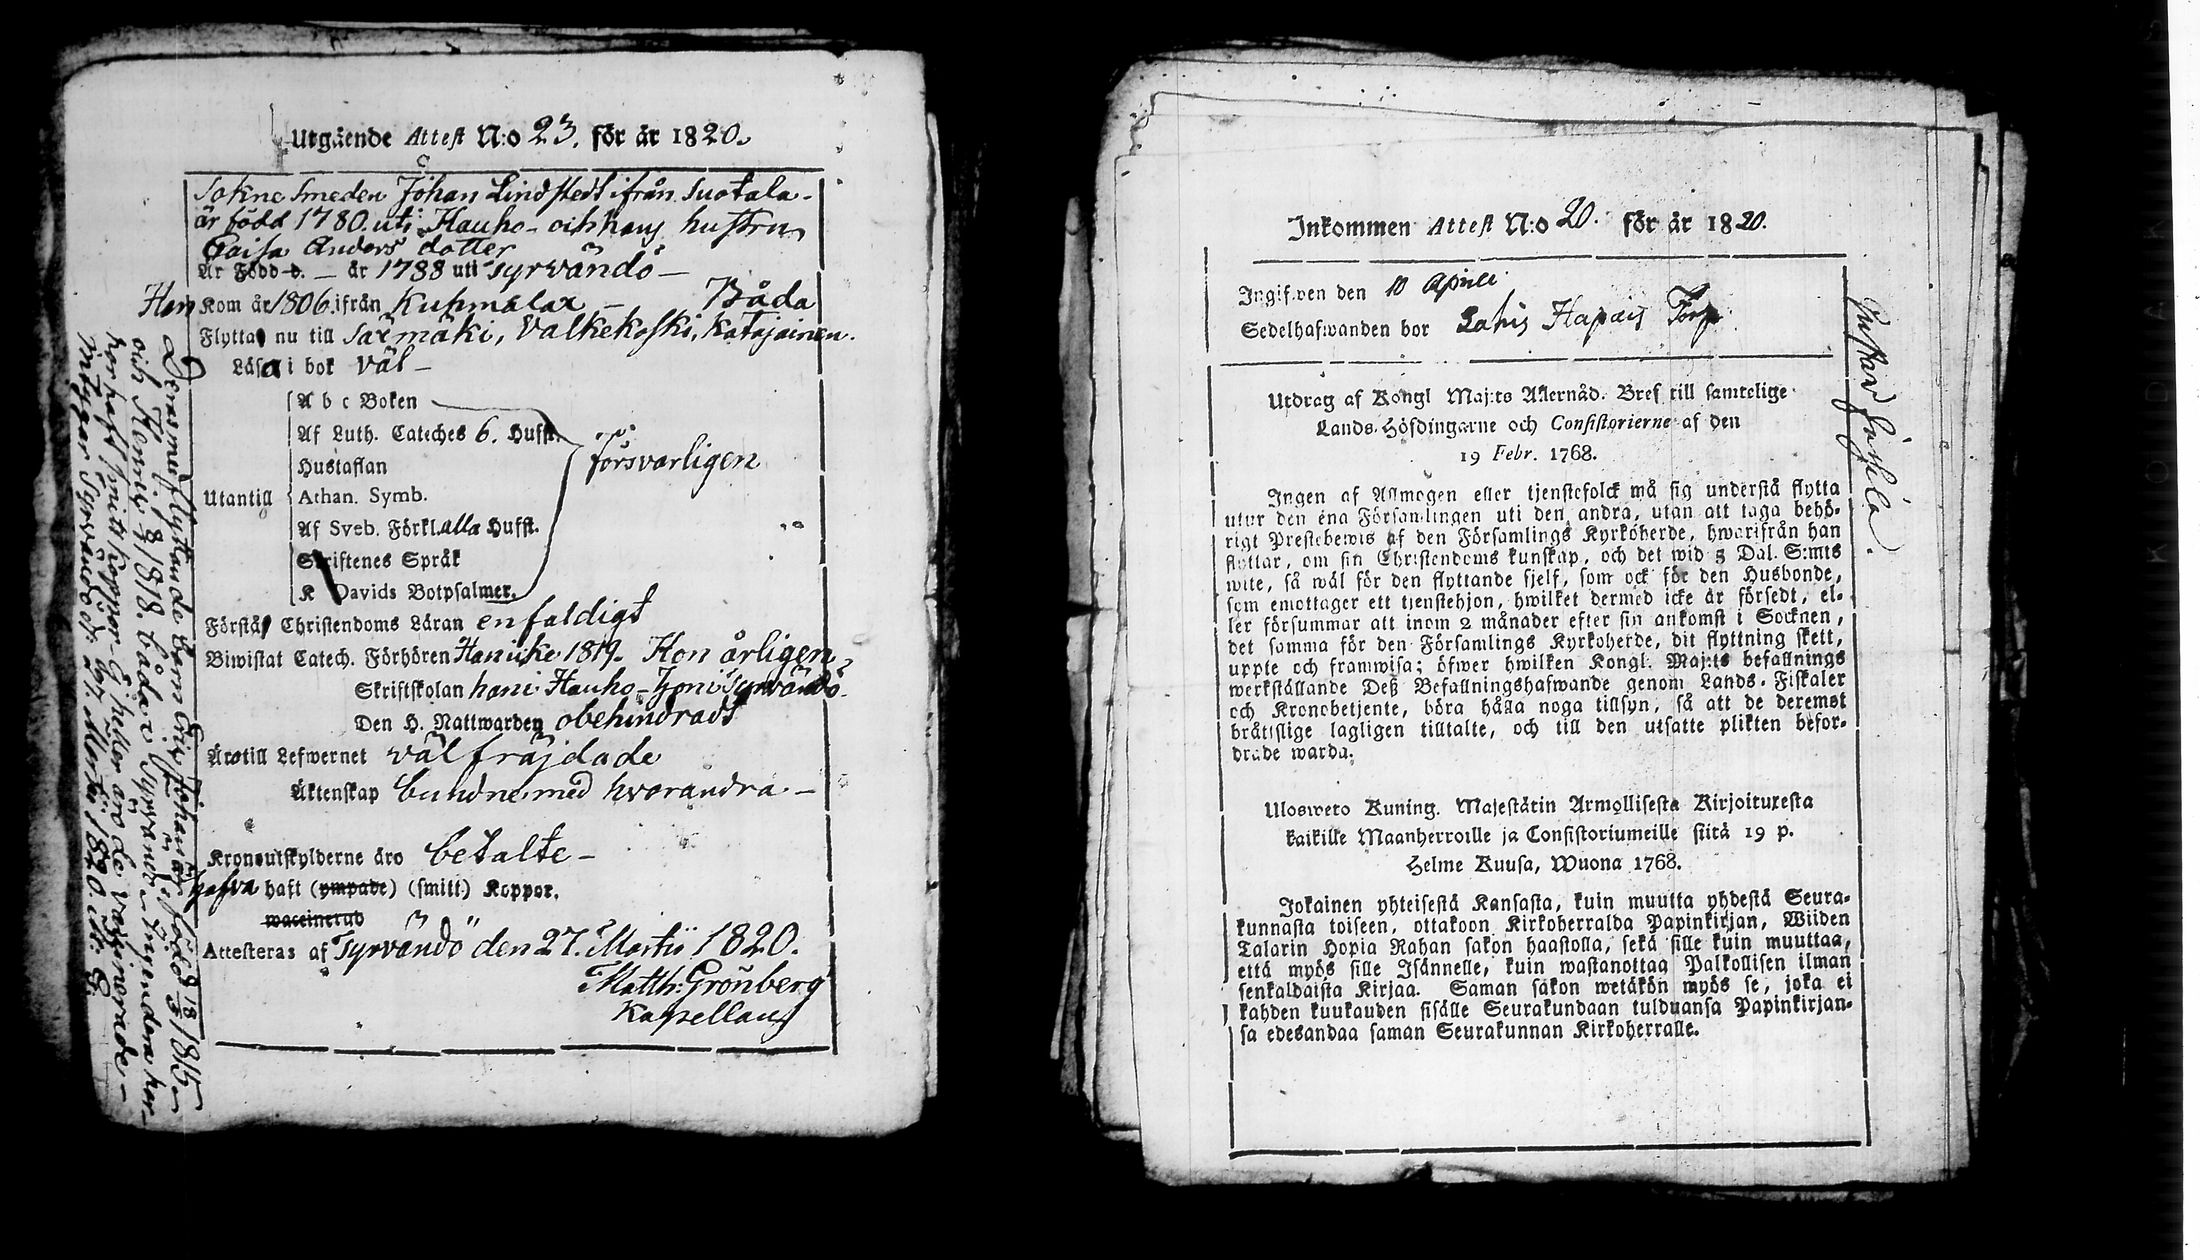 Utgående Attest N:o 23. för år 1820.
Sokne Smeden Johan Lindstedt ifrån Suotala.
är född 1780. uti Hauho – och hans hustru
Caisa Anders dotter
Är Född d. – år 1788 uti Tyrvändö –
Han Kom år 1806. ifrån Kuhmalax – Båda
Flytta nu till Säxmäki, Valkekoski, Katajainen.
Läsa i bok väl –
A b c Boken
Af Luth. Cateches 6. Hufst.
Hustaflan
försvarligen
Utantill
Athan. Symb.
Af Sveb. Förkl. alla Hufst.
Skriftenes Språk
K Davids Botpsalmer.
Förstå Christendoms Läran enfaldigt
Biwistat Catech. Förhören Han icke 1819. Hon årligen
Skriftskolan han i Hauho – hon i Tyrvändö.
Den H. Nattwarden obehindradt
Äro till Lefwernet välfräjdade
Äktenskap bundne med hvarandra –
Kronoutskylderne äro betalte –
hafva haft (ympade) (smitt.) Koppor.
waccinerad
Attesteras af Tyrvändö den 27. Martii 1820.
Matth: Grönberg
Kapellan
Deras medflyttande Barn Johan är född 9/3 1815 –
och Henric 18/8 1818. både i Tyrvändö – Ingendera har
haft smitt koppor. Ej heller äro de vaccinerade –
intygar Tyrvändö d. 27 Martii 1820
Inkommen Attest N:o 20. för år 1820.
Ingifwen den 10 Aprili
Sedelhafwanden bor Lahis Hapais Torp
Gustaf
Utdrag af Kongl Maj:ts Allernåd. Bref till samtelige
Lands-Höfdingarne och Consistorierne af den
19 Febr. 1768.
Ingen af Allmogen eller tjenstefolck må sig understå flytta
utur den ena Församlingen uti den andra, utan att taga behö-
rigt Prestebewis af den Församlings Kyrkoherde, hwarifrån han
flyttar, om sin Christendoms kunskap, och det wid 5 Dal. S:mts
wite, så wäl för den flyttande sjelf, som ock för den Husbonde,
som emottager ett tjenstehjon, hwilket dermed icke är försedt, el-
ler försummar att inom 2 månader efter sin ankomst i Socknen,
det samma för den Församlings Kyrkoherde, dit flyttning skett,
uppte och framwisa; öfwer hwilken Kongl. Maj:ts befallnings
werkställande Deß Befallningshafwande genom Lands-Fiskaler
och Kronobetjente, böra hålla noga tillsyn, så att de deremot
bråttslige lagligen tilltalte, och till den utsatte plikten befor-
drade warda.
Ulosweto Kuning. Majestätin Armollisesta Kirjoituxesta
kaikille Maanherroille ja Consistoriumeille siitä 19 p.
Helme Kuusa, Wuona 1768.
Jokainen yhteisestä Kansasta, kuin muutta yhdestä Seura-
kunnasta toiseen, ottakoon Kirkoherralda Papinkirjan, Wiiden
Talarin Hopia Rahan sakon haastolla, sekä sille kuin muuttaa,
että myös sille Isännelle, kuin wastanottaa Palkollisen ilman
senkaldaista Kirjaa. Saman sakon wetäkön myös se, joka ei
kahden kuukauden sisälle Seurakundaan tulduansa Papinkirjan-
sa edesandaa saman Seurakunnan Kirkoherralle.